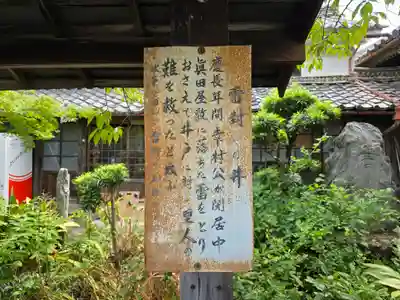 雷封じの井
慶長年間幸村公が閑居中
眞田屋敷に落ちた雷をとり
おさえて井戸に封じ里人の
難を救ったと云ふ